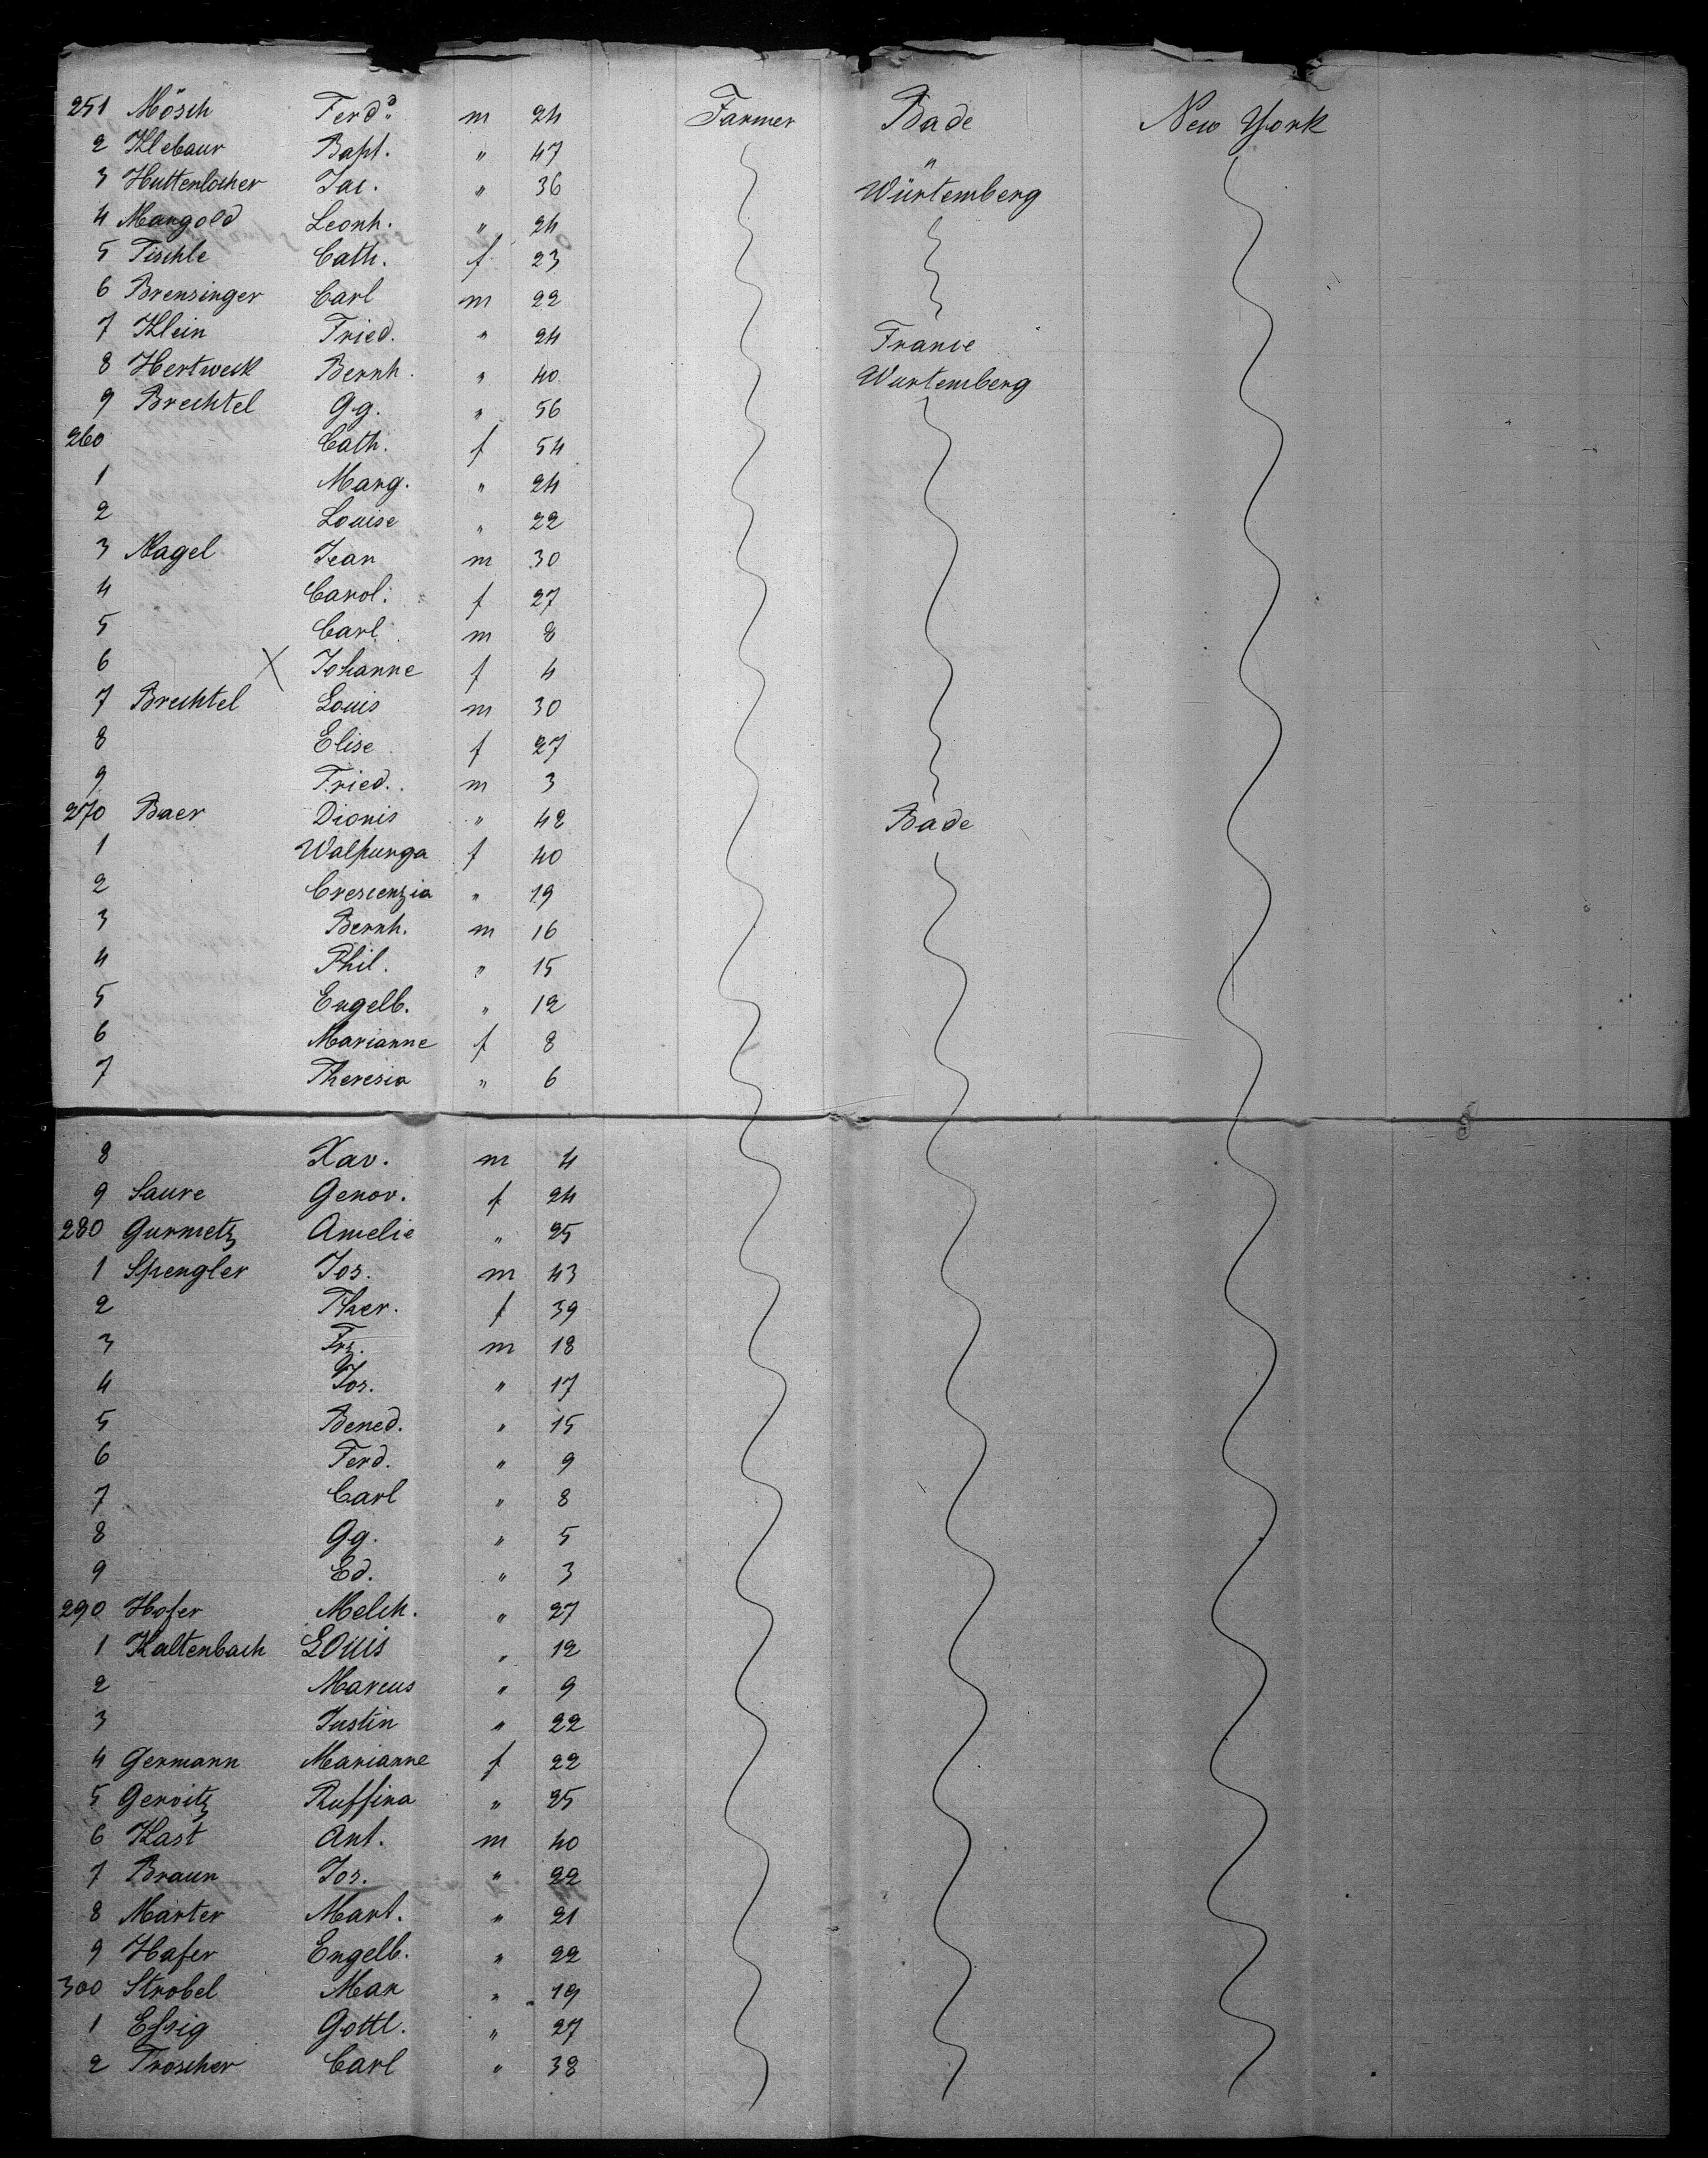 251 Mösch Ferd. m 24 Farmer Bade New York
2 Klebaur Bapt. " 47 "
3 Huttenlocher Jac. " 36 Würtemberg
4 Mangold Leonh. " 24
5 Tischle Cath. f 23
6 Brensinger Carl m 22
7 Klein Fried. " 24 France
8 Hertweck Bernh. " 40 Wurtemberg
9 Brechtel Gg. " 56
260 Cath. f 54
1 Marg. " 24
2 Louise " 22
3 Nagel Jean m 30
4 Carol. f 27
5 Carl m 8
6 X Johanne f 4
7 Brechtel Louis m 30
8 Elise f 27
9 Fried. m 3
270 Baer Dionis " 42 Bade
1 Walpurga f 40
2 Crescenzia " 19
3 Bernh. m 16
4 Phil. " 15
5 Engelb. " 12
6 Marianne f 8
7 Theresia " 6
8 Xav. m 4
9 Saure Genov. f 24
280 Gurmetz Amelie " 25
1 Spengler Jos. m 43
2 Ther. f 39
3 Frz. m 18
4 Jos. " 17
5 Bened. " 15
6 Ferd. " 9
7 Carl " 8
8 Gg. " 5
9 Ed. " 3
290 Hofer Melch. " 27
1 Kaltenbach Louis " 12
2 Marcus " 9
3 Justin " 22
4 Germann Marianne f 22
5 Gervitz Ruffina " 25
6 Kast Ant. m 40
7 Braun Jos. " 22
8 Marter Mart. " 21
9 Hafer Engelb. " 22
300 Strobel Max " 19
1 Essig Gottl. " 27
2 Troscher Carl " 38